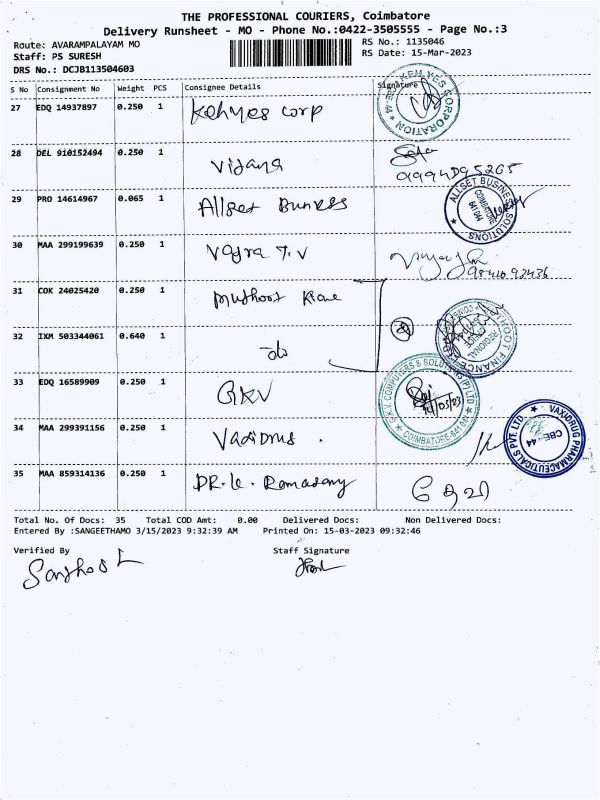 THE PROFESSIONAL COURIERS, Coimbatore
Delivery Runsheet - MO - Phone No.:0422-3505555 - Page No.:3
Route: AVARAMPALAYAM MO
RS No.: 1135046
Staff: PS SURESH
RS Date: 15-Mar-2023
DRS No.: DCJB113504603
S No Consignment No Weight PCS Consignee Details Signature
27 EDQ 14937897 0.250 1 Kehyes Corp
KEN YES CORPORATION CBE-44
28 DEL 910152494 0.250 1 Vijaya
29 PRO 14614967 0.065 1 Allset
ALLSET BUSINESS SOLUTIONS COIMBATORE 641 044
30 MAA 299199639 0.250 1 Vajra T.V
9841092436
31 COK 24025420 0.250 1 Muthoot
32 IXM 503344061 0.640 1 do
33 EDQ 16589909 0.250 1 GKV
G.K.V. COMPUTERS & SOLUTIONS (P) LTD COIMBATORE-641 044
34 MAA 299391156 0.250 1
VAXIDRUG PHARMACEUTICALS PVT. LTD CBE-44
35 MAA 859314136 0.250 1 DR.
Total No. Of Docs: 35 Total COD Amt: 0.00 Delivered Docs: Non Delivered Docs:
Entered By :SANGEETHAMO 3/15/2023 9:32:39 AM Printed On: 15-03-2023 09:32:46
Verified By Staff Signature